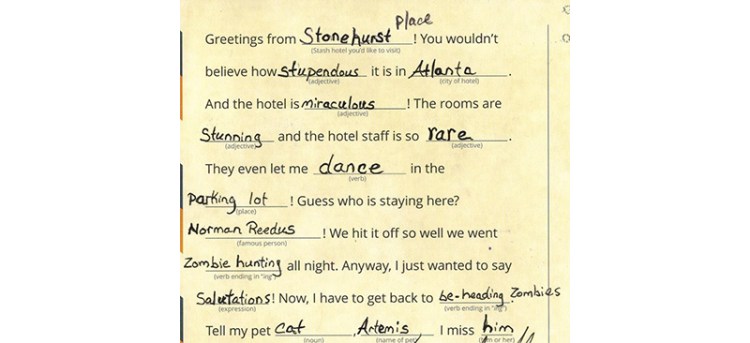 Place
Greetings from Stonehurst ! You wouldn't
(Stash hotel you'd like to visit)
believe how stupendous it is in Atlanta .
(adjective) (city of hotel)
And the hotel is miraculous ! The rooms are
(adjective)
Stunning and the hotel staff is so rare .
(adjective) (adjective)
They even let me dance in the
(verb)
parking lot ! Guess who is staying here?
(place)
Norman Reedus ! We hit it off so well we went
(famous person)
Zombie hunting all night. Anyway, I just wanted to say
(verb ending in "ing")
Salutations! Now, I have to get back to be-heading Zombies.
(expression) (verb ending in "ing")
Tell my pet Cat , Artemis I miss him
(noun) (name of pet) or her)